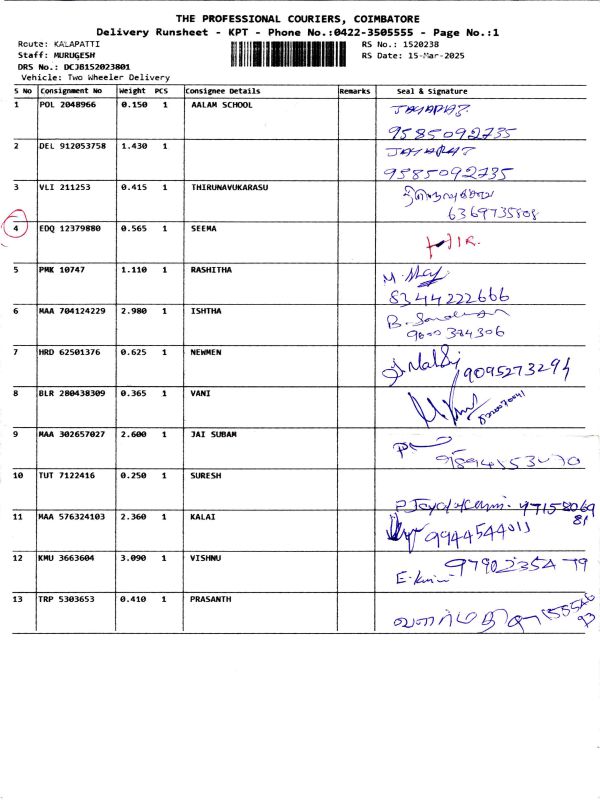 THE PROFESSIONAL COURIERS, COIMBATORE
Delivery Runsheet - KPT - Phone No.:0422-3505555 - Page No.:1
Route: KALAPATTI RS No.: 1520238
Staff: MURUGESH RS Date: 15-Mar-2025
DRS No.: DCJB152023801
Vehicle: Two Wheeler Delivery
S No Consignment No Weight PCS Consignee Details Remarks Seal & Signature
1 POL 2048966 0.150 1 AALAM SCHOOL
9585092735
2 DEL 912053758 1.430 1
9585092735
3 VLI 211253 0.415 1 THIRUNAVUKARASU
6369735808
4 EDQ 12379880 0.565 1 SEEMA
5 PMK 10747 1.110 1 RASHITHA
8344222666
6 MAA 704124229 2.980 1 ISHTHA
9600384306
7 HRD 62501376 0.625 1 NEWMEN
9095273294
8 BLR 280438309 0.365 1 VANI
9 MAA 302657027 2.600 1 JAI SUBAM
10 TUT 7122416 0.250 1 SURESH
11 MAA 576324103 2.360 1 KALAI
9944544011
12 KMU 3663604 3.090 1 VISHNU
9790235479
13 TRP 5303653 0.410 1 PRASANTH
வளர்மதி